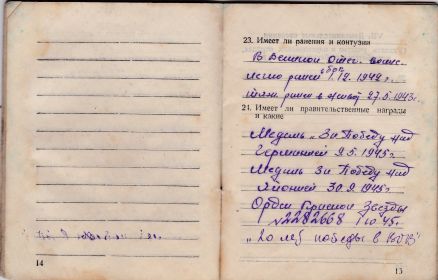 23. Имеет ли ранения и контузии
В Великой Отеч. войне
легко ранен в бою 1.12.1942 г.
тяж. ранен в живот 27.5.1943 г.
24. Имеет ли правительственные награды
и какие
Медаль „За Победу над
Германией 9.5.1945 г.
Медаль За Победу над
Японией 30.9.1945 г.
Орден Красной Звезды
№ 2282668 1945 г.
„20 лет победы в ВОВ"
14
15